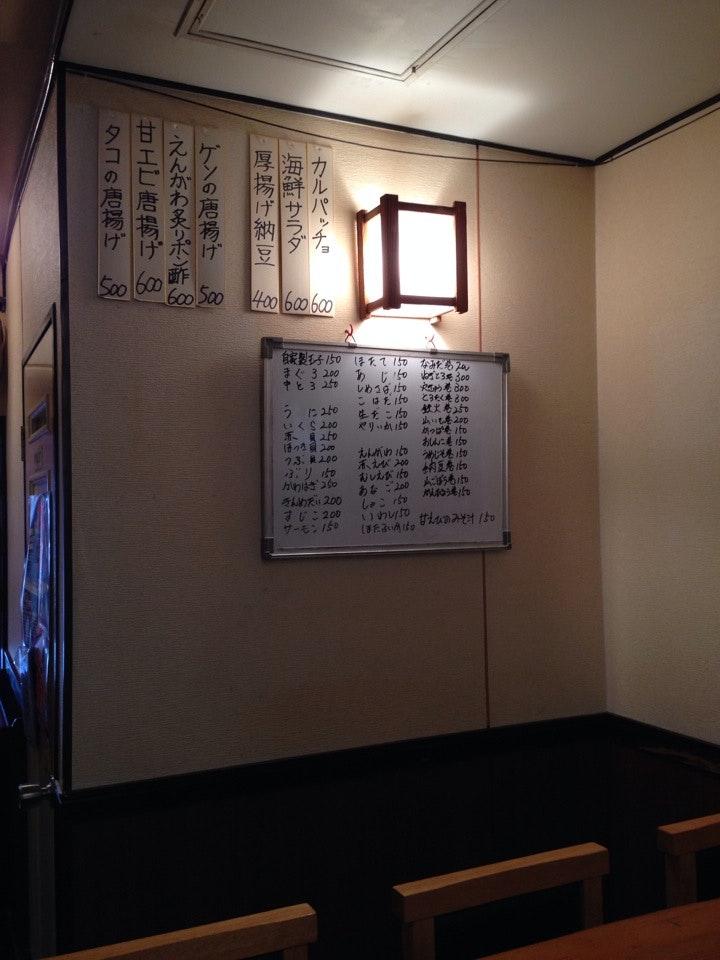 カルパッチョ 600
海鮮サラダ 600
厚揚げ納豆 400
ゲソの唐揚げ 500
えんがわ炙りポン酢 600
甘エビ唐揚げ 600
タコの唐揚げ 500
自家製玉子 150
まぐろ 200
中とろ 250
うに 250
いくら 200
赤貝 250
ほっき貝 200
つぶ貝 200
ぶり 150
かわはぎ 250
きんめだい 200
すじこ 200
サーモン 150
ほたて 150
あじ 150
しめさば 150
こはだ 150
生だこ 150
やりいか 150
えんがわ 150
赤えび 200
むしえび 150
あなご 200
しゃこ 150
いわし 150
ほたるいか 150
なみだ巻 200
ねぎとろ巻 300
穴きゅう巻 300
とろたく巻 300
鉄火巻 250
山いも巻 200
かっぱ巻 150
おしんこ巻 150
うめじそ巻 150
納豆巻 150
山ごぼう巻 150
かんぴょう巻 150
甘えびのみそ汁 150